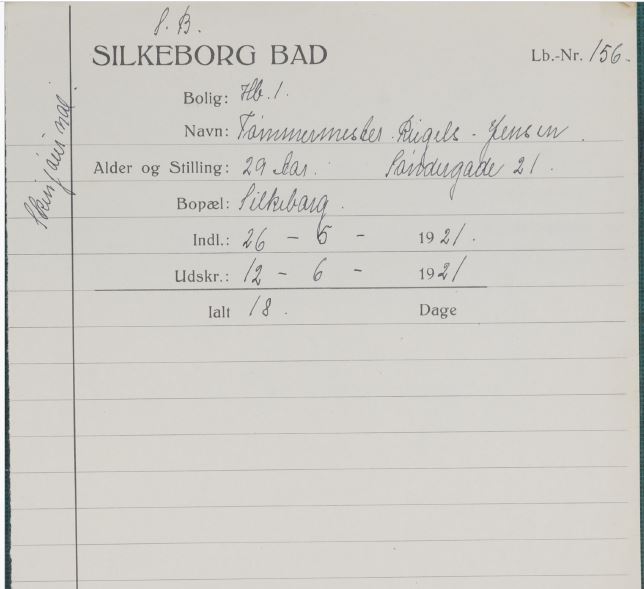 S. B.
SILKEBORG BAD
Lb.-Nr. 156.
Bolig: Hb. 1.
Navn: Tømmermester Riigels-Jensen.
Alder og Stilling: 29 Aar. Søndergade 21.
Bopæl: Silkeborg.
Indl.: 26 - 5 - 1921.
Udskr.: 12 - 6 - 1921
Ialt 18. Dage